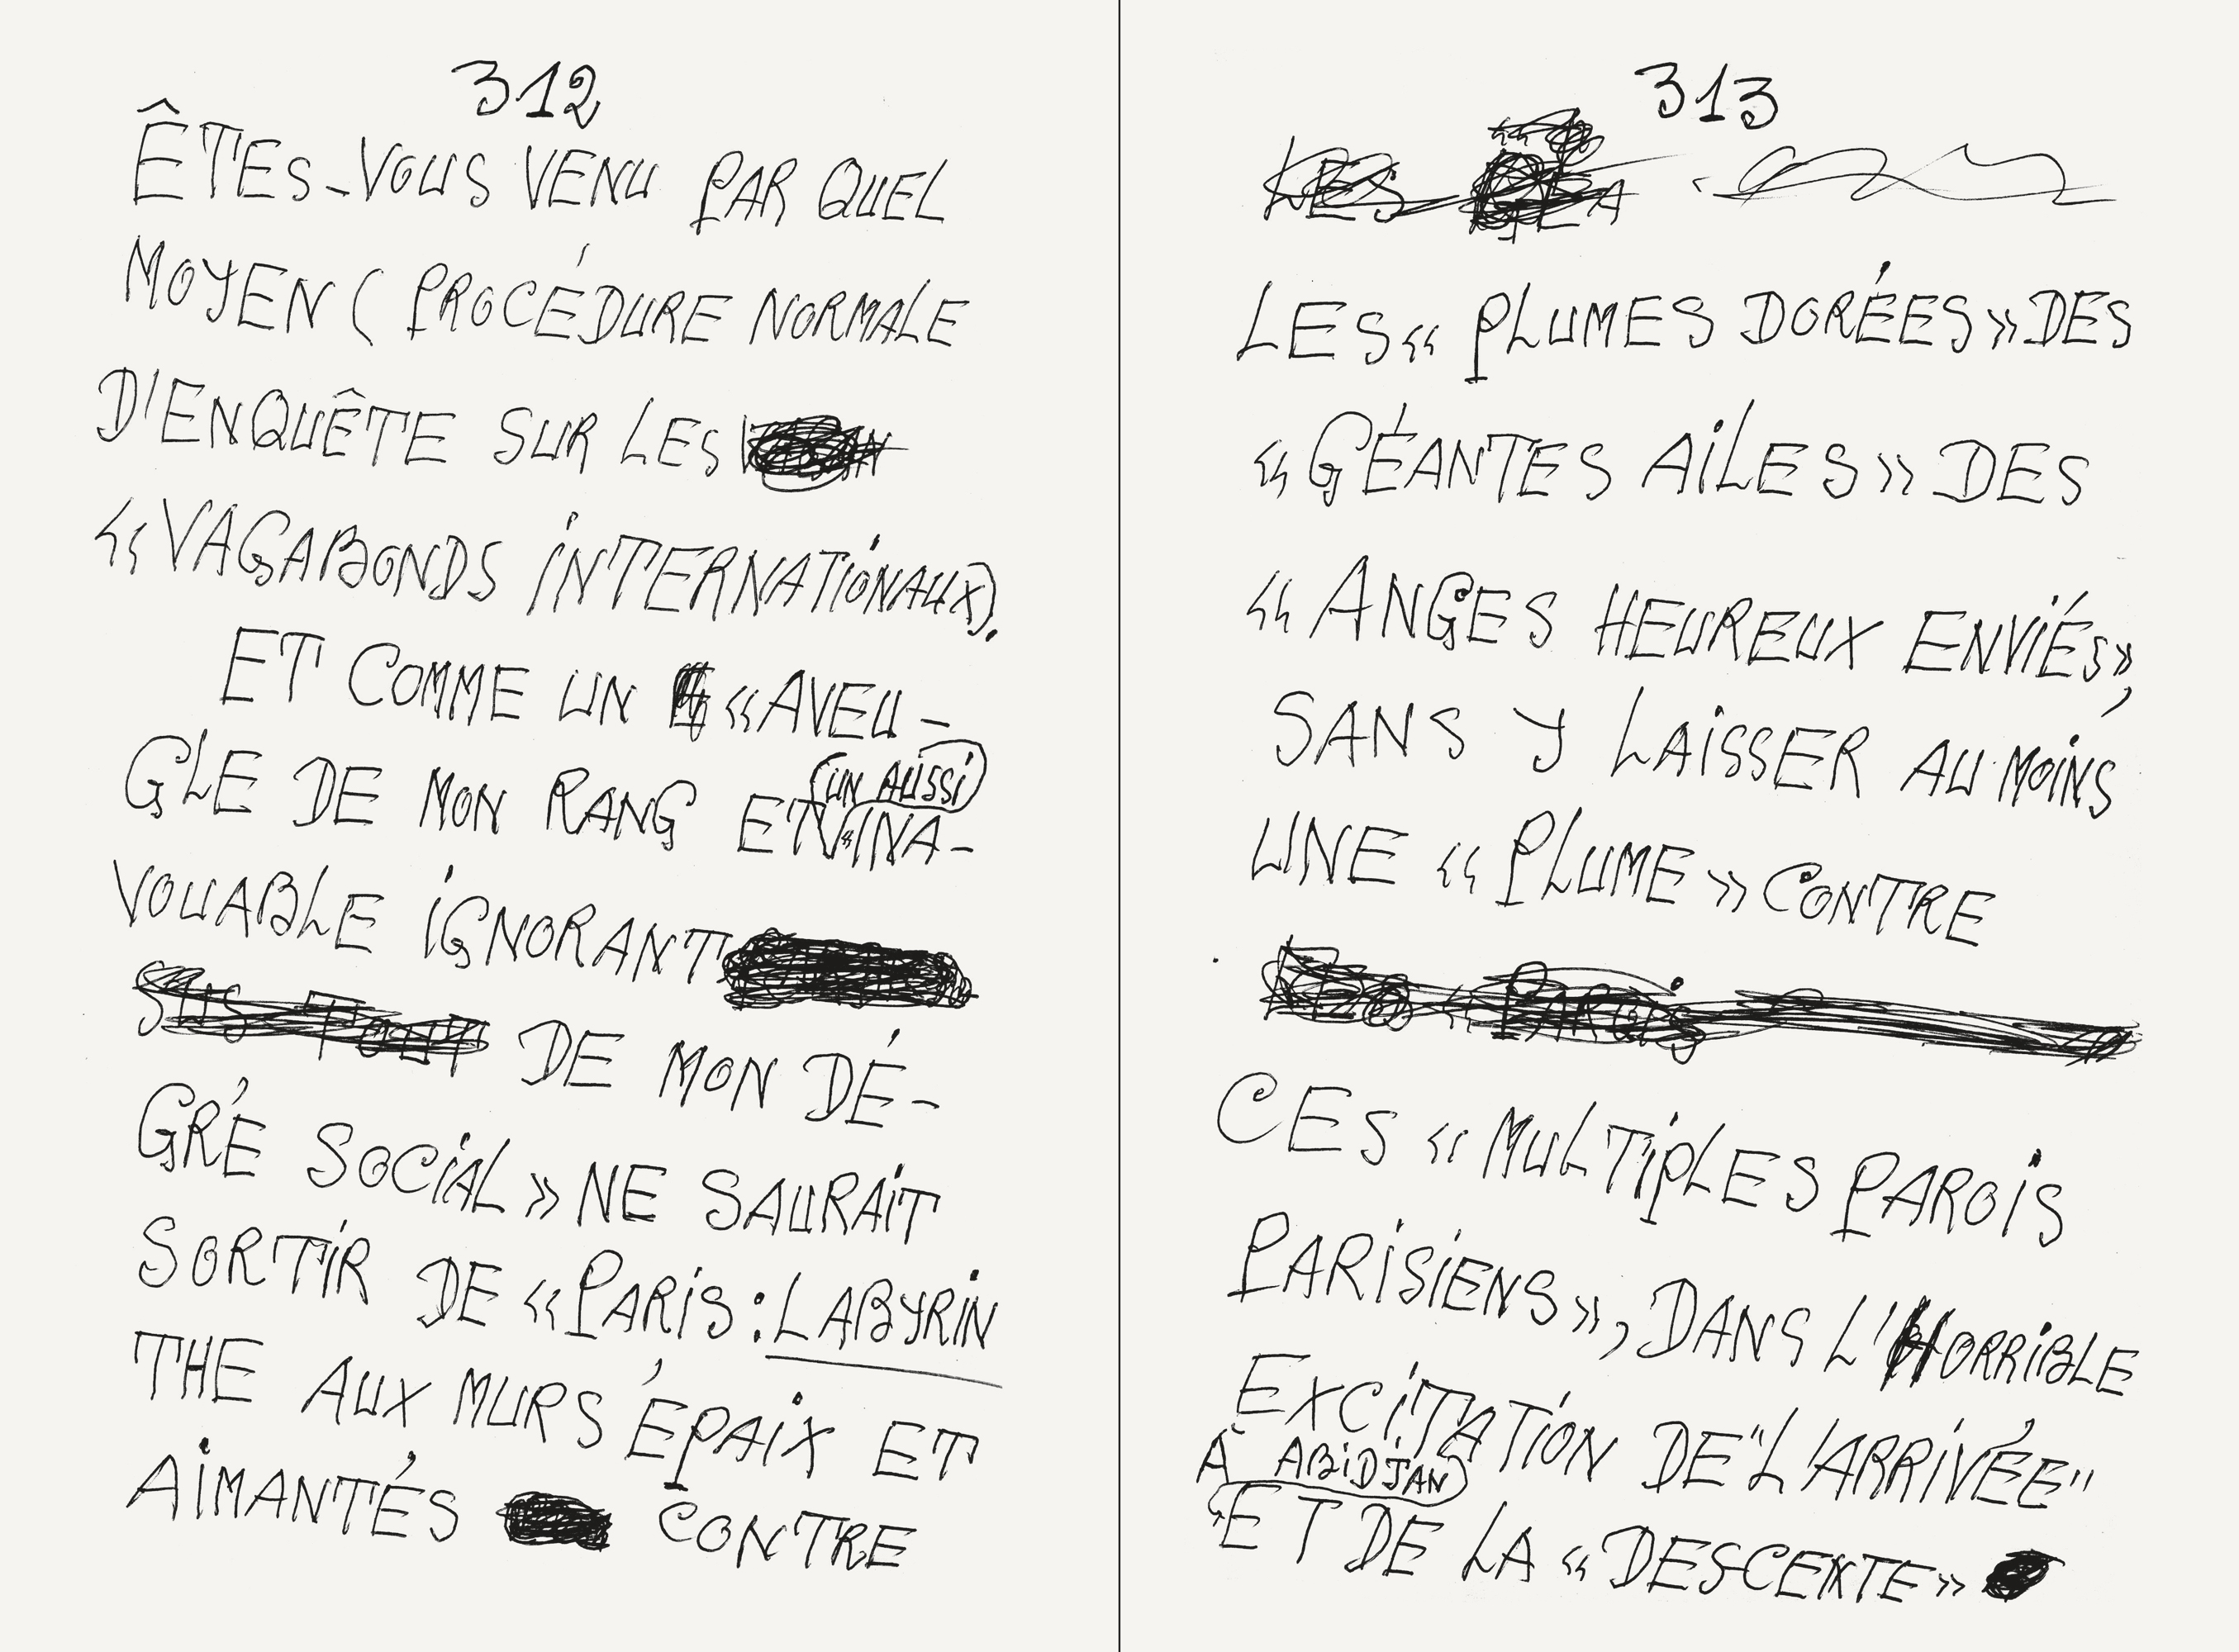 312
ÊTES-VOUS VENU PAR QUEL
MOYEN ( PROCÉDURE NORMALE
D'ENQUÊTE SUR LES
«VAGABONDS INTERNATIONAUX).
ET COMME UN «AVEU-
GLE DE MON RANG ET UN AUSSI «INA-
VOUABLE IGNORANT
SUS TOUT DE MON DÉ-
GRÉ SOCIAL» NE SAURAIT
SORTIR DE «PARIS : LABYRIN
THE AUX MURS ÉPAIX ET
AIMANTÉS CONTRE
313
LES
LES «PLUMES DORÉES» DES
«GÉANTES AILES» DES
«ANGES HEUREUX ENVIÉS»,
SANS Y LAISSER AU MOINS
UNE «PLUME» CONTRE
«PAROIS
CES «MULTIPLES PAROIS
PARISIENS», DANS L'HORRIBLE
EXCITATION DE "L'ARRIVÉE"
À ABIDJAN
ET DE LA «DESCENTE»